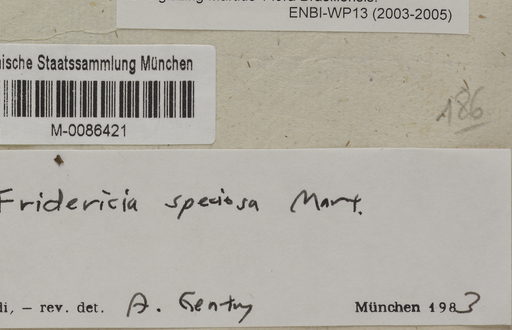 ENBI-WP13 (2003-2005)
nische Staatssammlung München
M-0086421
186
Fridericia speciosa Mart.
di, – rev. det. A. Gentry
München 1983